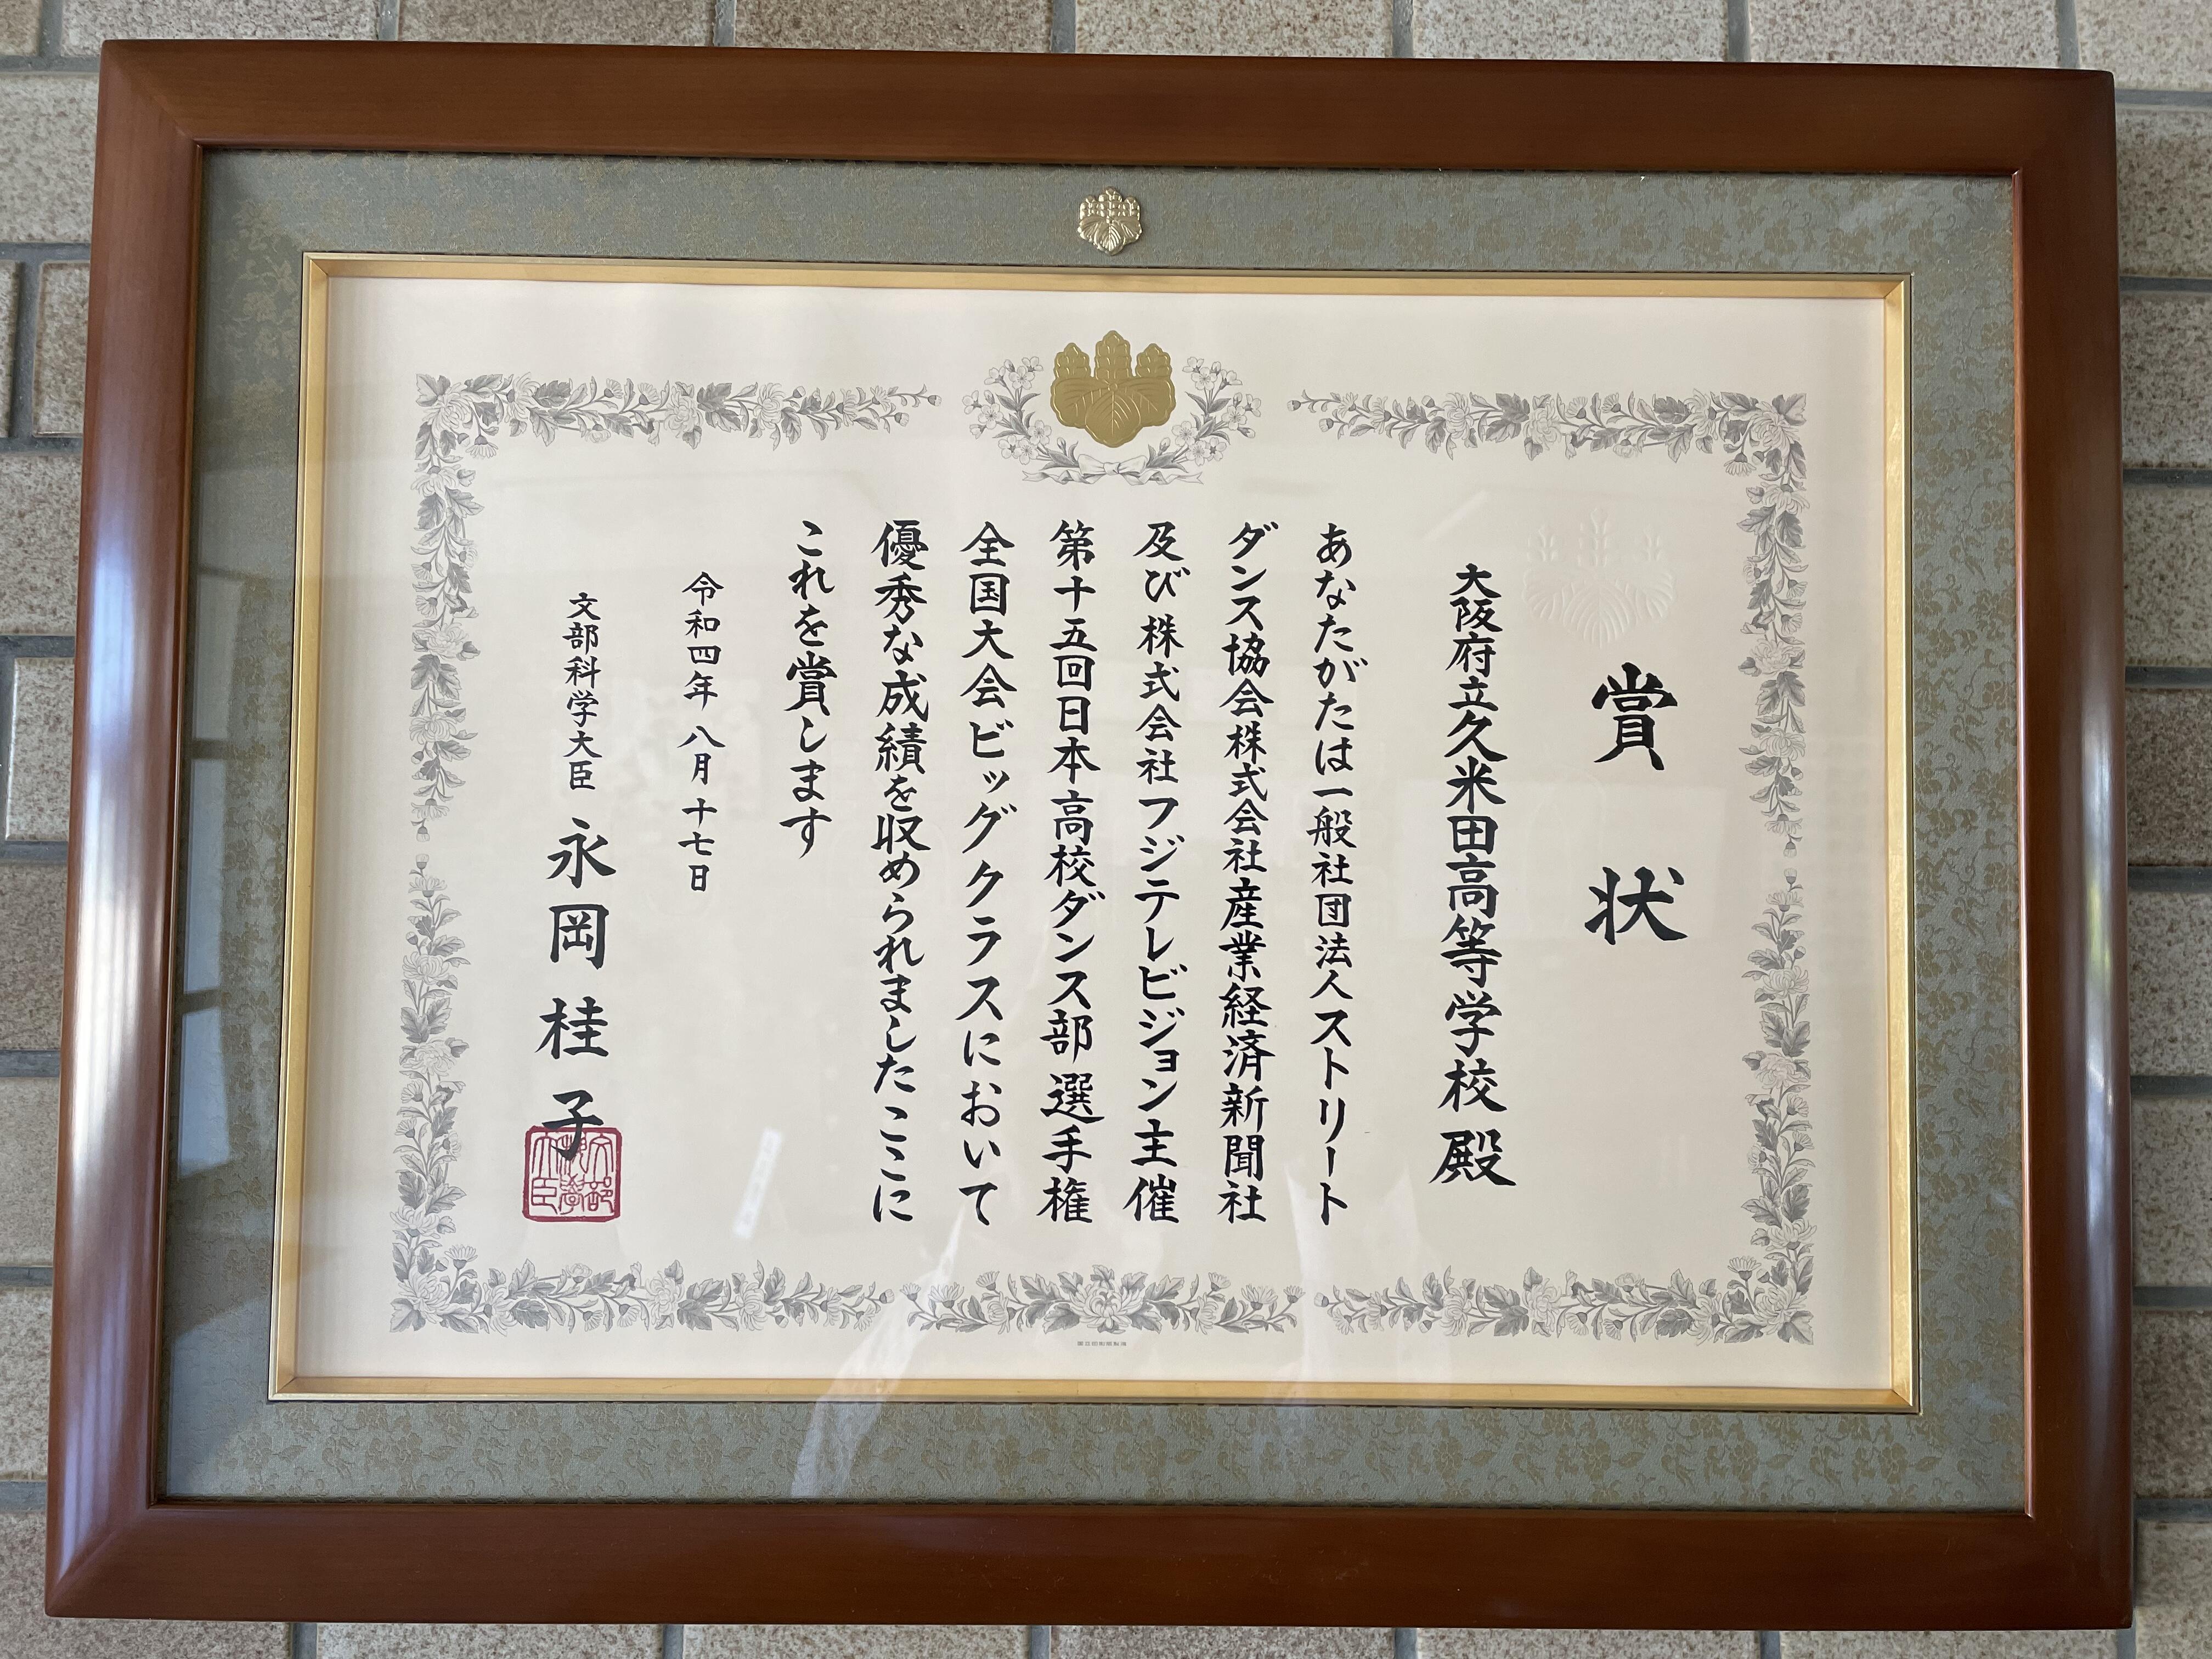 賞状
大阪府立久米田高等学校殿
あなたがたは一般社団法人ストリート
ダンス協会株式会社産業経済新聞社
及び株式会社フジテレビジョン主催
第十五回日本高校ダンス部選手権
全国大会ビッグクラスにおいて
優秀な成績を収められましたここに
これを賞します
令和四年八月十七日
文部科学大臣 永岡桂子